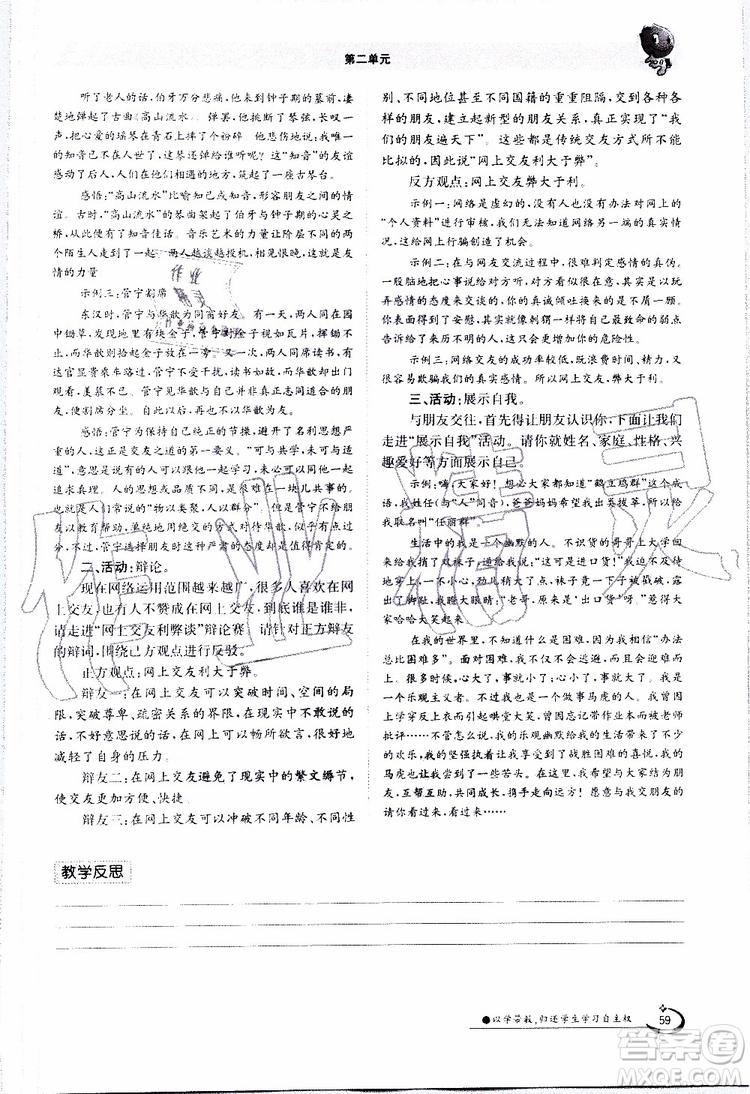 第二单元
听了老人的话，伯牙万分悲痛，他来到钟子期的墓前，凄
楚地弹起了古曲《高山流水》。弹罢，他挑断了琴弦，长叹一
声，把心爱的瑶琴在青石上摔了个粉碎。他悲伤地说：我唯一
的知音已不在人世了，这琴还弹给谁听呢？两位“知音”的友谊
感动了后人，人们在他们相遇的地方，筑起了一座古琴台。
感悟：“高山流水”比喻知己或知音，形容朋友之间的情
谊。古时，“高山流水”的琴曲架起了伯牙与钟子期的心灵之
桥，从此“高山流水”觅知音。音乐艺术的力量让阶层不同的
两个陌生人走到了一起，两人越谈越投机，相见恨晚，这就是友
情的力量。
示例三：管宁割席
东汉时，管宁与华歆为同窗好友。有一天，两人在园
中锄草，发现地里有块金子，管宁对金子视如瓦片，挥锄不
止，而华歆则拾起金子放在一旁。又一次，两人同席读书，有
达官显贵乘车路过，管宁不受干扰，读书如故，而华歆却出门
观看，羡慕不已。管宁见华歆并非真正志同道合的朋友，
便割席分坐。自此以后，再也不以华歆为友。
感悟：管宁为保持自己纯正的节操，避开了名利思想严
重的人，这正是交友之道的第一要义。“可与共学，未可与适
道”，意思是有的人可以跟他一起学习，未必可以跟他一块
追求真理。人的思想是有差异的，不是任何人都能在一块儿共事的。
也就是常说的“物以类聚，人以群分”。但管宁对待华歆，可
以教育帮助，单纯地用绝交的方式对待华歆，似乎有点过
分。管宁选择朋友时这种严肃的态度却是十分可贵的。
二、活动：辩论。
现在网络运用范围越来越广，很多人喜欢在网
上交友，也有人不赞成在网上交友，到底谁是谁非，
请走进“网上交友利弊谈”辩论赛，请针对正方辩友
的辩词，围绕己方观点进行反驳。
正方观点：网上交友利大于弊。
辩友一：在网上交友可以突破时间、空间的局
限，突破尊卑、疏密关系的界限，在现实中不敢说的
话、不好意思说的话，在网上可以畅所欲言，这样就
减轻了自身的压力。
辩友二：在网上交友避免了现实中的繁文缛节，
使交友更加方便、快捷。
辩友三：在网上交友可以冲破不同年龄、不同性
别、不同地位甚至不同国籍的重重阻隔，交到各种各
样的朋友，建立起新型的朋友关系，真正做到了“我
们的朋友遍天下”。这些都是传统交友方式所不能
比拟的，因此说“网上交友利大于弊”。
反方观点：网上交友弊大于利。
示例一：网络是虚幻的，我们没有办法对网上的
“个人资料”进行审核，我们无法知道网络另一端的真实情
况，这给网上行骗创造了机会。
示例二：在与网友交流过程中，很难判定感情的真伪。
一股脑地把心事说给对方，看似很惬意，但对方可能是以玩
弄感情的态度来交谈的，你的真诚倾吐换来的是屏幕背后的嘲笑。
你表面得到了安慰，其实就像刺猬一样，将自己最致命的弱点
告诉给了来历不明的人，这只会增加你的危险性。
示例三：网络交友的成功率较低，既浪费时间、精力，又
很容易欺骗我们的真实感情。所以，网上交友弊大于利。
三、活动：展示自我。
与朋友交往，首先得让朋友认识你，下面让我们
走进“展示自我”活动。请你就姓名、家庭、性格、兴
趣爱好等方面展示自己。
示例：嗨，大家好！想必大家都知道“鹤立鸡群”这个成
语，我姓任（与“人”同音），爸爸妈妈希望我出类拔萃，所以
给我取名叫“任丽群”。
生活中的我是一个幽默的人。不识货的哥哥上大学
回来给我捎了双袜子，说是出口货。我迫不及待
地穿上，一不小心，心灵手巧，袜子竟一下子被撑破了，
露出了脚趾，我瞪大眼睛：“老哥，原来是‘出口货’呀。”惹得大家
哈哈大笑起来。
在我的世界里，不知道什么是困难，因为我相信“办法
总比困难多”。面对困难，我不会逃避，而是迎难而上。我是一
个乐观主义者。我有时候也会做个马虎的人。我曾因
上学穿反上衣而引起哄堂大笑，曾因忘记带作业本而被老师
批评……不管怎样，我的乐观幽默给我的生活带来了不少
的欢乐，我的坚强让我享受到了战胜困难的喜悦，我的
马虎也让我尝到了一些苦头。在这里，我希望与大家结为朋
友，互帮互助，共同成长，携手走向远方！愿意与我交朋友的
请你们都过来……
教学反思
●以学带教，归还学生学习自主权
59
作业
精灵
作业精灵
答案圈
MXQE.COM